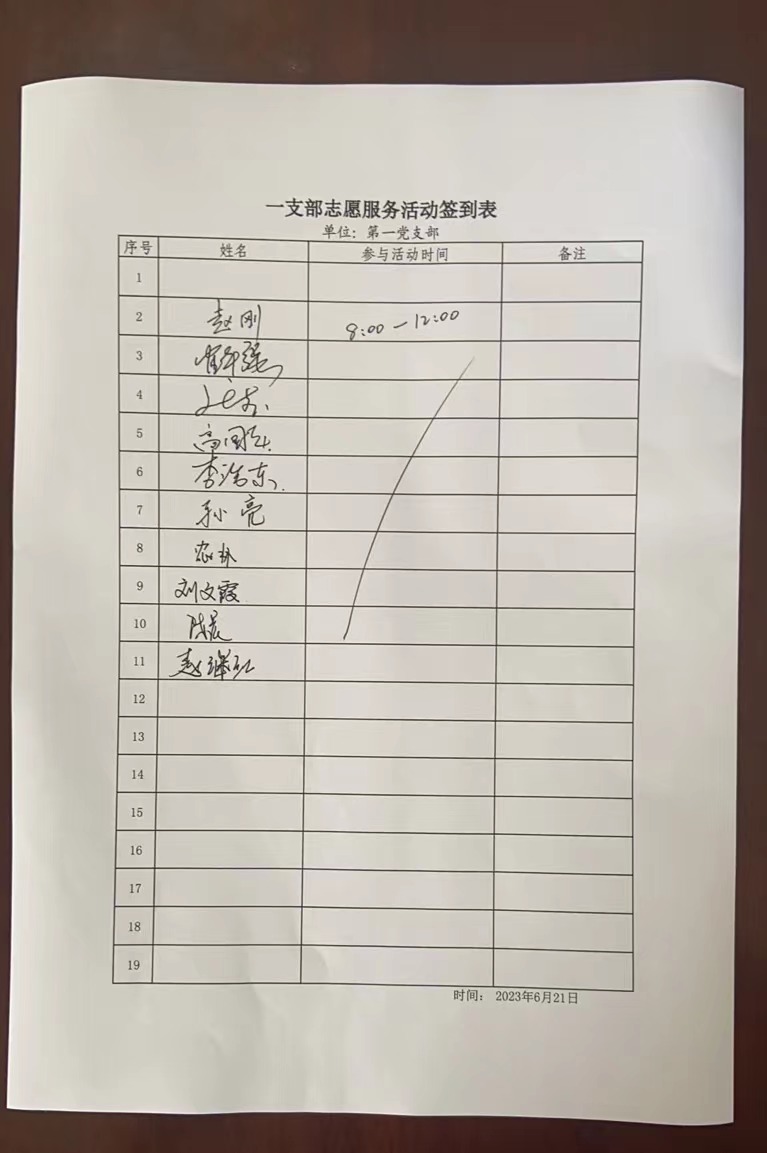 一支部志愿服务活动签到表
单位：第一党支部
序号 姓名 参与活动时间 备注
1
2 赵刚 8:00-12:00
3
4
5
6 李浩东
7 孙亮
8
9 刘文霞
10 陈晨
11
12
13
14
15
16
17
18
19
时间： 2023年6月21日